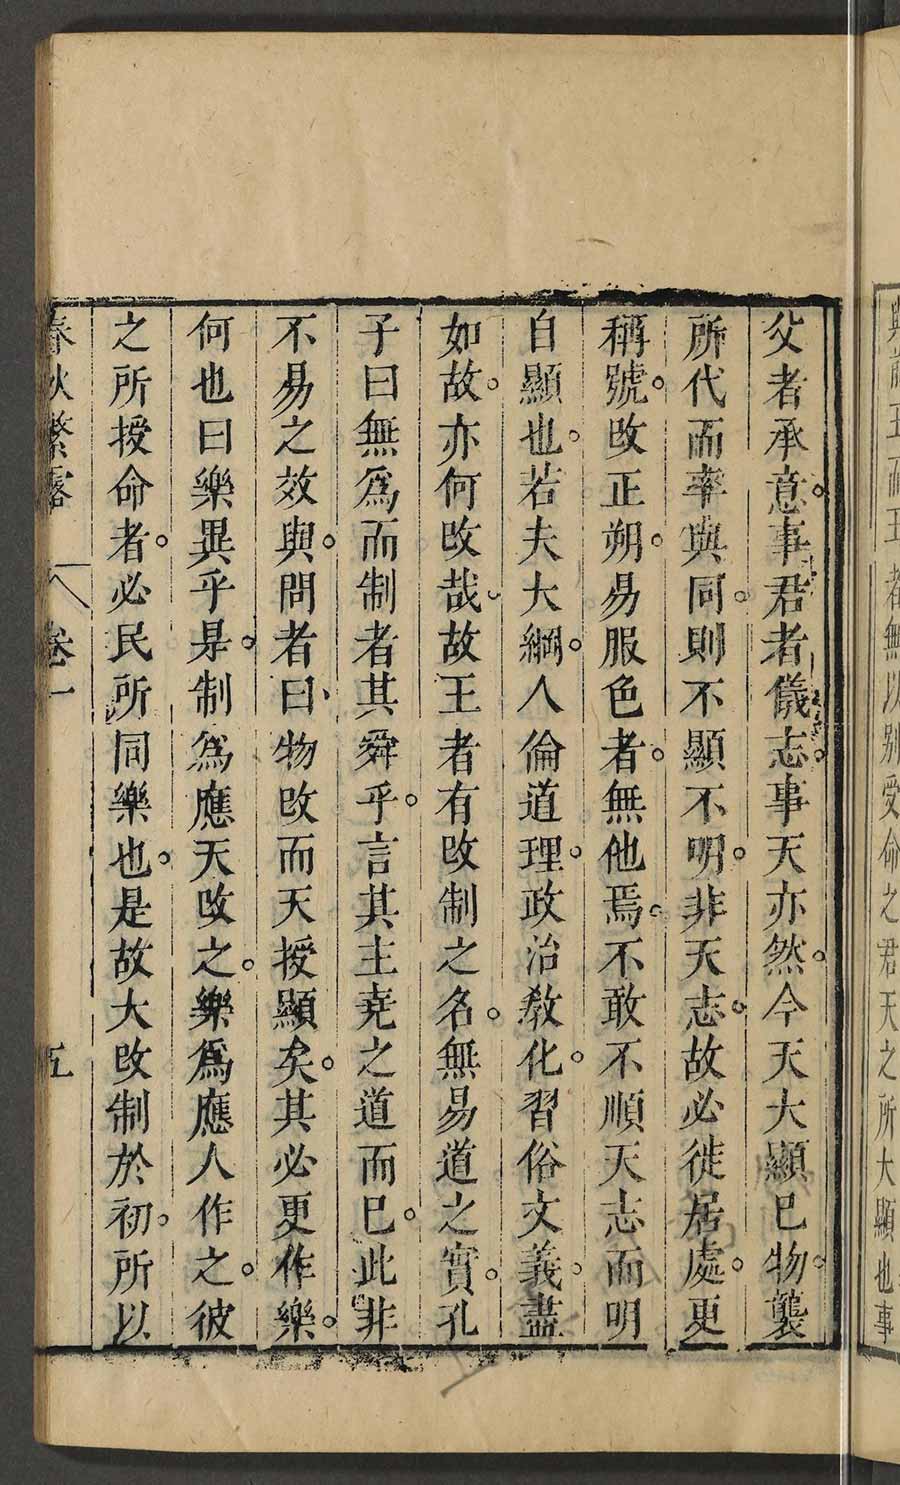 與前王而王者無以別受命之君天之所大顯也事
父者承意。事君者儀志。事天亦然。今天大顯已物。襲
所代而率與同。則不顯不明。非天志。故必徙居處。更
稱號。改正朔。易服色者。無他焉。不敢不順天志而明
自顯也。若夫大綱。人倫道理。政治教化。習俗文義。盡
如故。亦何改哉。故王者有改制之名。無易道之實。孔
子曰無爲而制者其舜乎。言其主堯之道而已。此非
不易之效與。問者曰、物改而天授顯矣。其必更作樂。
何也曰樂異乎是。制爲應天改之。樂爲應人作之。彼
之所授命者。必民所同樂也。是故大改制於初。所以
春秋繁露 卷一 五